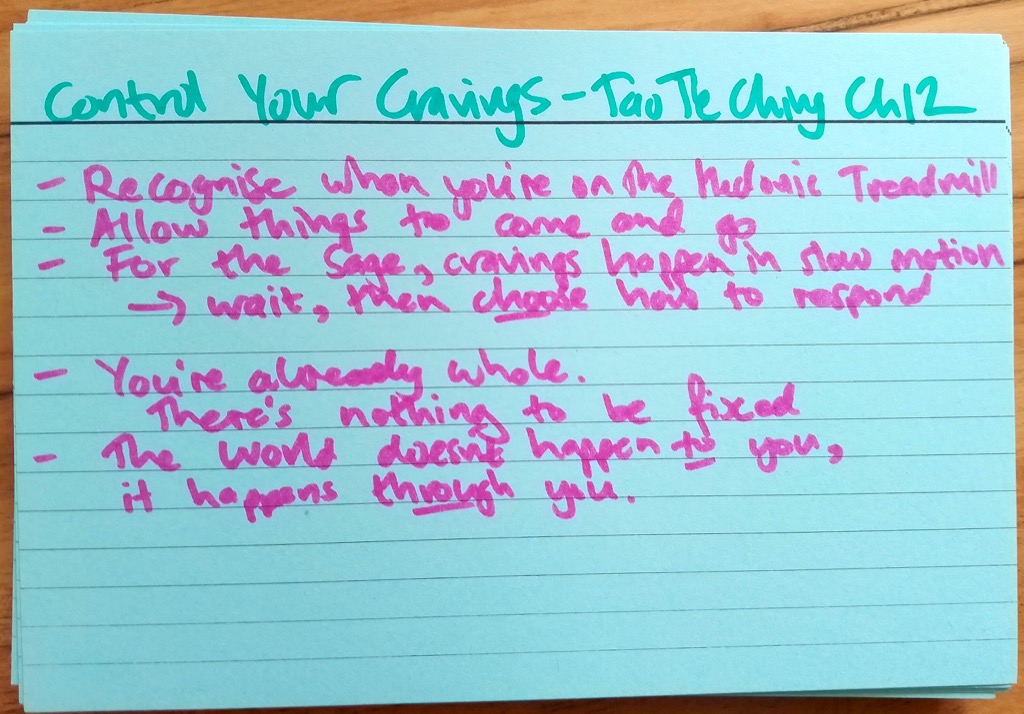 Control Your Cravings - Tao Te Ching Ch12
- Recognise when you're on the Hedonic Treadmill
- Allow things to come and go
- For the Sage, cravings happen in slow motion
→ wait, then choose how to respond
- You're already whole.
There's nothing to be fixed
- The world doesn't happen to you,
it happens through you.